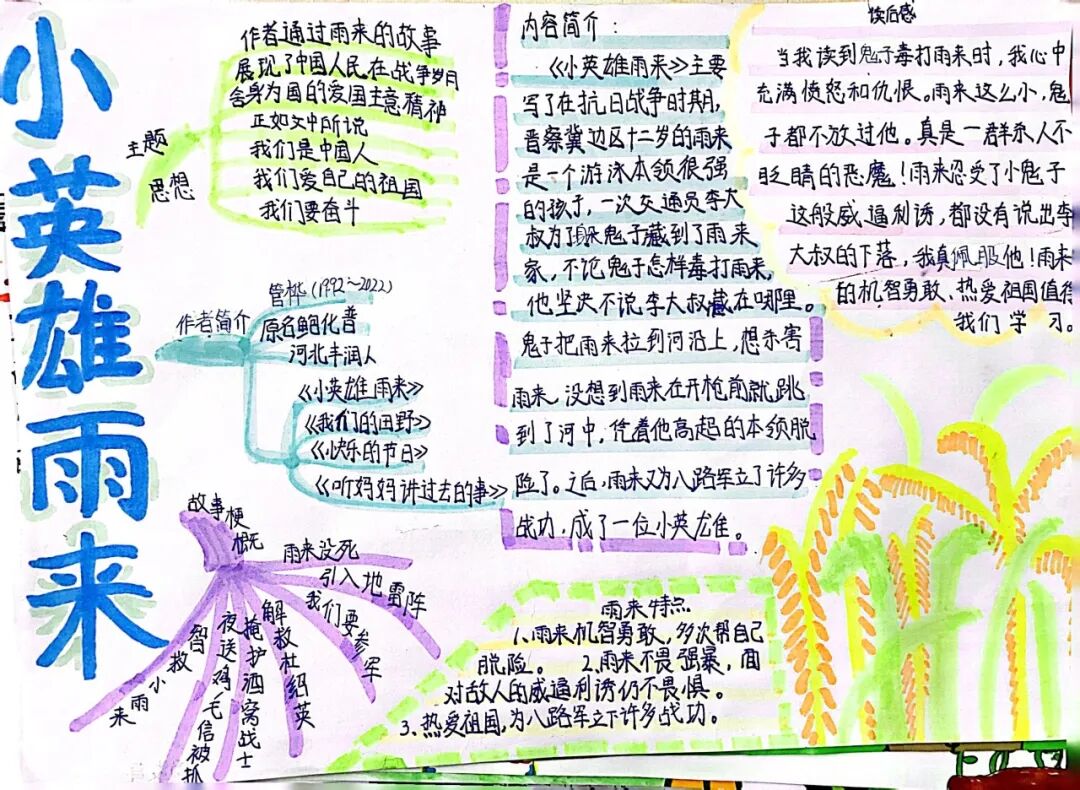 小英雄雨来
主题
思想
作者通过雨来的故事
展现了中国人民在战争岁月
舍身为国的爱国主意精神
正如文中所说
我们是中国人
我们爱自己的祖国
我们要奋斗
作者简介
管桦(1992~2022)
原名鲍化普
河北丰润人
《小英雄雨来》
《我们的田野》
《快乐的节日》
《听妈妈讲过去的事》
故事梗
概
雨来没死
引入地雷阵
我们要参军
解救杜绍英
掩护酒窝战士
夜送鸡毛信被抓
智救小雨来
内容简介：
《小英雄雨来》主要
写了在抗日战争时期，
晋察冀边区十二岁的雨来
是一个游泳本领很强
的孩子，一次交通员李大
叔为了躲鬼子藏到了雨来
家，不论鬼子怎样毒打雨来，
他坚决不说李大叔藏在哪里。
鬼子把雨来拉到河沿上，想杀害
雨来，没想到雨来在开枪前就跳
到了河中，凭着他高超的本领脱
险了。之后，雨来又为八路军立了许多
战功，成了一位小英雄。
读后感
当我读到鬼子毒打雨来时，我心中
充满愤怒和仇恨。雨来这么小，鬼
子都不放过他。真是一群杀人不
眨睛的恶魔！雨来忍受了小鬼子
这般威逼利诱，都没有说出李
大叔的下落，我真佩服他！雨来
的机智勇敢、热爱祖国值得
我们学习。
雨来特点
1、雨来机智勇敢，多次帮自己
脱险。 2、雨来不畏强暴，面
对敌人的威逼利诱仍不畏惧。
3、热爱祖国，为八路军立下许多战功。